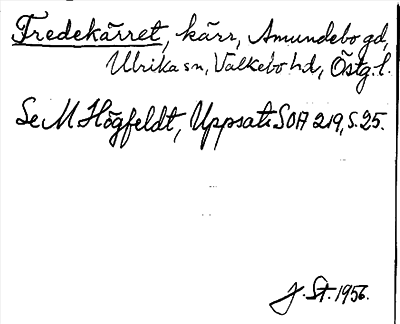 Fredekärret, kärr, Amundebo gd,
Ulrika sn, Valkebo hd, Östg. l.
Se M Högfeldt, Uppsats SOA 219, s. 25.
J. St. 1956.